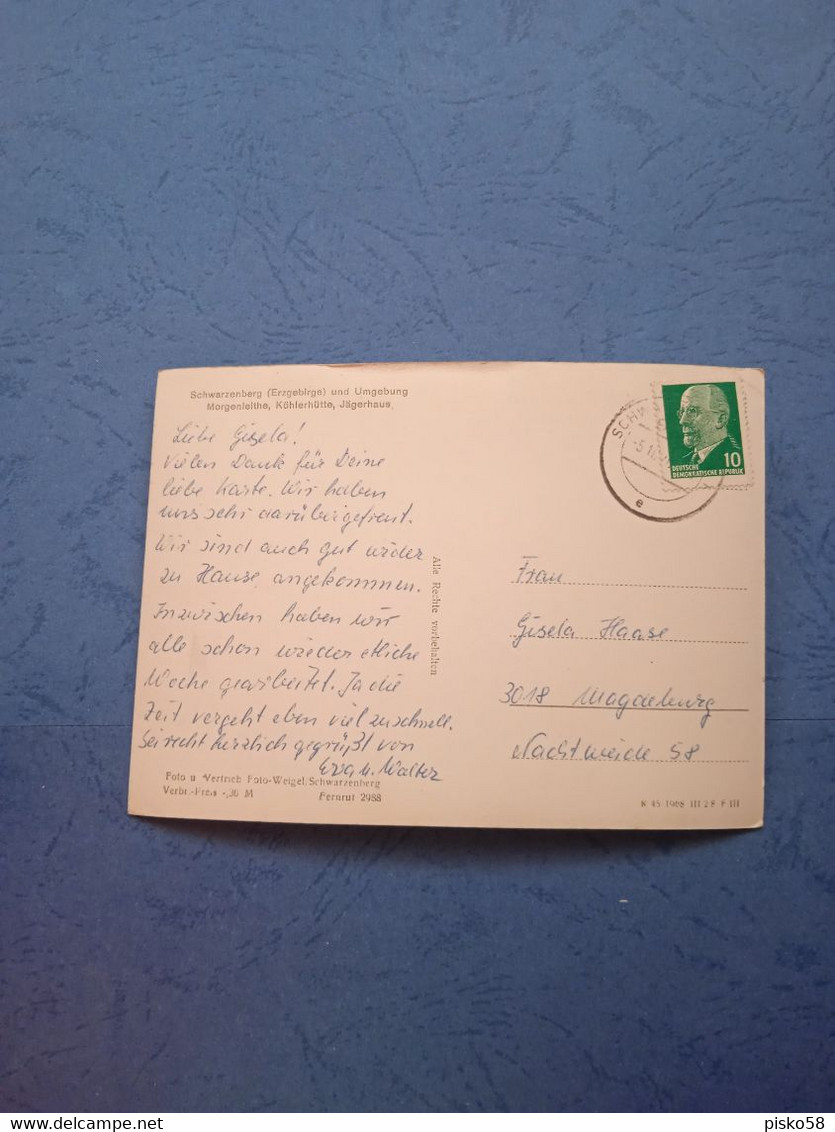 Schwarzenberg (Erzgebirge) und Umgebung
Morgenleithe, Köhlerhütte, Jägerhaus
Liebe Gisela!
Vielen Dank für Deine
liebe Karte. Wir haben
uns sehr darüber gefreut.
Wir sind auch gut wieder
zu Hause angekommen.
Inzwischen haben wir
alle schon wieder etliche
Woche gearbeitet. Ja die
Zeit vergeht eben viel zu schnell.
Sei recht herzlich gegrüßt von
u. Walter
Foto u Vertrieb Foto-Weigel, Schwarzenberg
Verbr.-Preis -,30 M Fernruf 2988
Alle Rechte vorbehalten
SCHW
-5.10
e
10
DEUTSCHE
DEMOKRATISCHE REPUBLIK
Frau
Gisela Haase
3018 Magdeburg
Nachtweide 58
K 45 1968 III 2 F F III
delcampe.net
pisko58